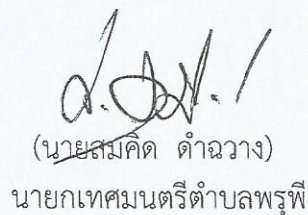 (นายสมคิด ดำฉวาง)
นายกเทศมนตรีตำบลพรุพี